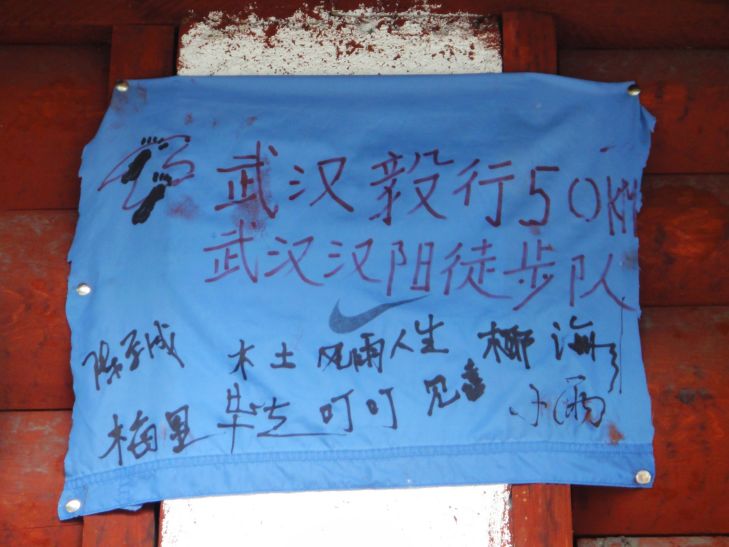 武汉毅行50KM
武汉汉阳徒步队
木土 风雨人生 椰海
梅里 叮叮 见喜 小雨